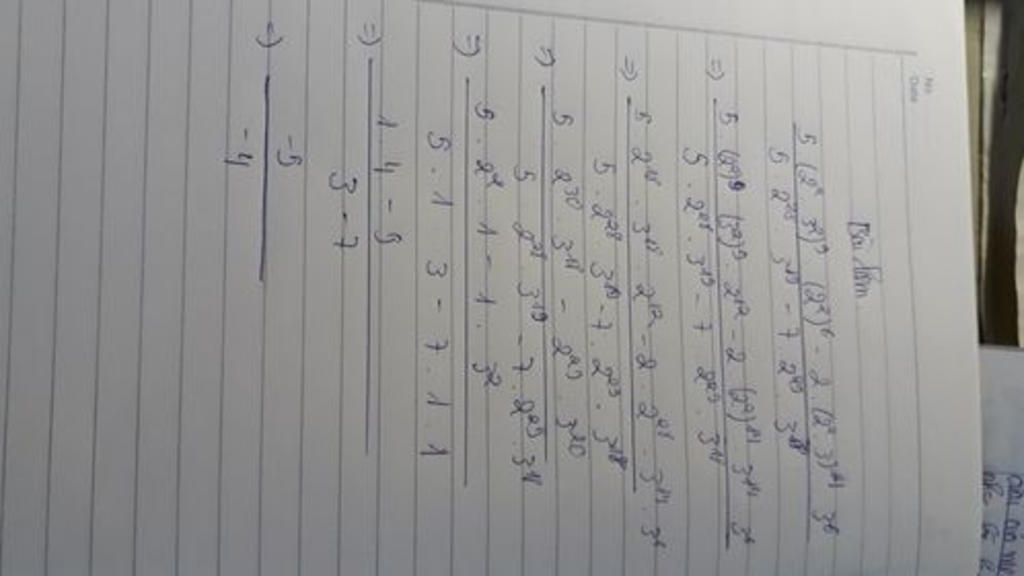 Bài làm
5 (2² 3²)⁹ (2²)⁶ - 2 (2² 3)¹⁴ 3⁶
5 2²⁸ 3¹⁹ - 7 2²⁹ 3¹⁸
=> 5 (2²)⁹ (3²)⁹ . 2¹² - 2 (2²)¹⁴ 3¹⁴ 3⁶
5 . 2²⁸ . 3¹⁹ - 7 2²⁹ . 3¹⁸
=> 5 2¹⁸ . 3¹⁸ . 2¹² - 2 . 2²⁸ . 3¹⁴ . 3⁶
5 . 2²⁸ 3¹⁹ - 7 . 2²⁹ . 3¹⁸
=> 5 . 2³⁰ . 3¹⁸ - 2²⁹ . 3²⁰
5 2²⁸ . 3¹⁹ - 7 . 2²⁹ . 3¹⁸
=> 5 . 2² . 1 - 1 . 3²
5 . 1 3 - 7 . 1 1
=> 1 4 - 9
3 - 7
=> -5
-4